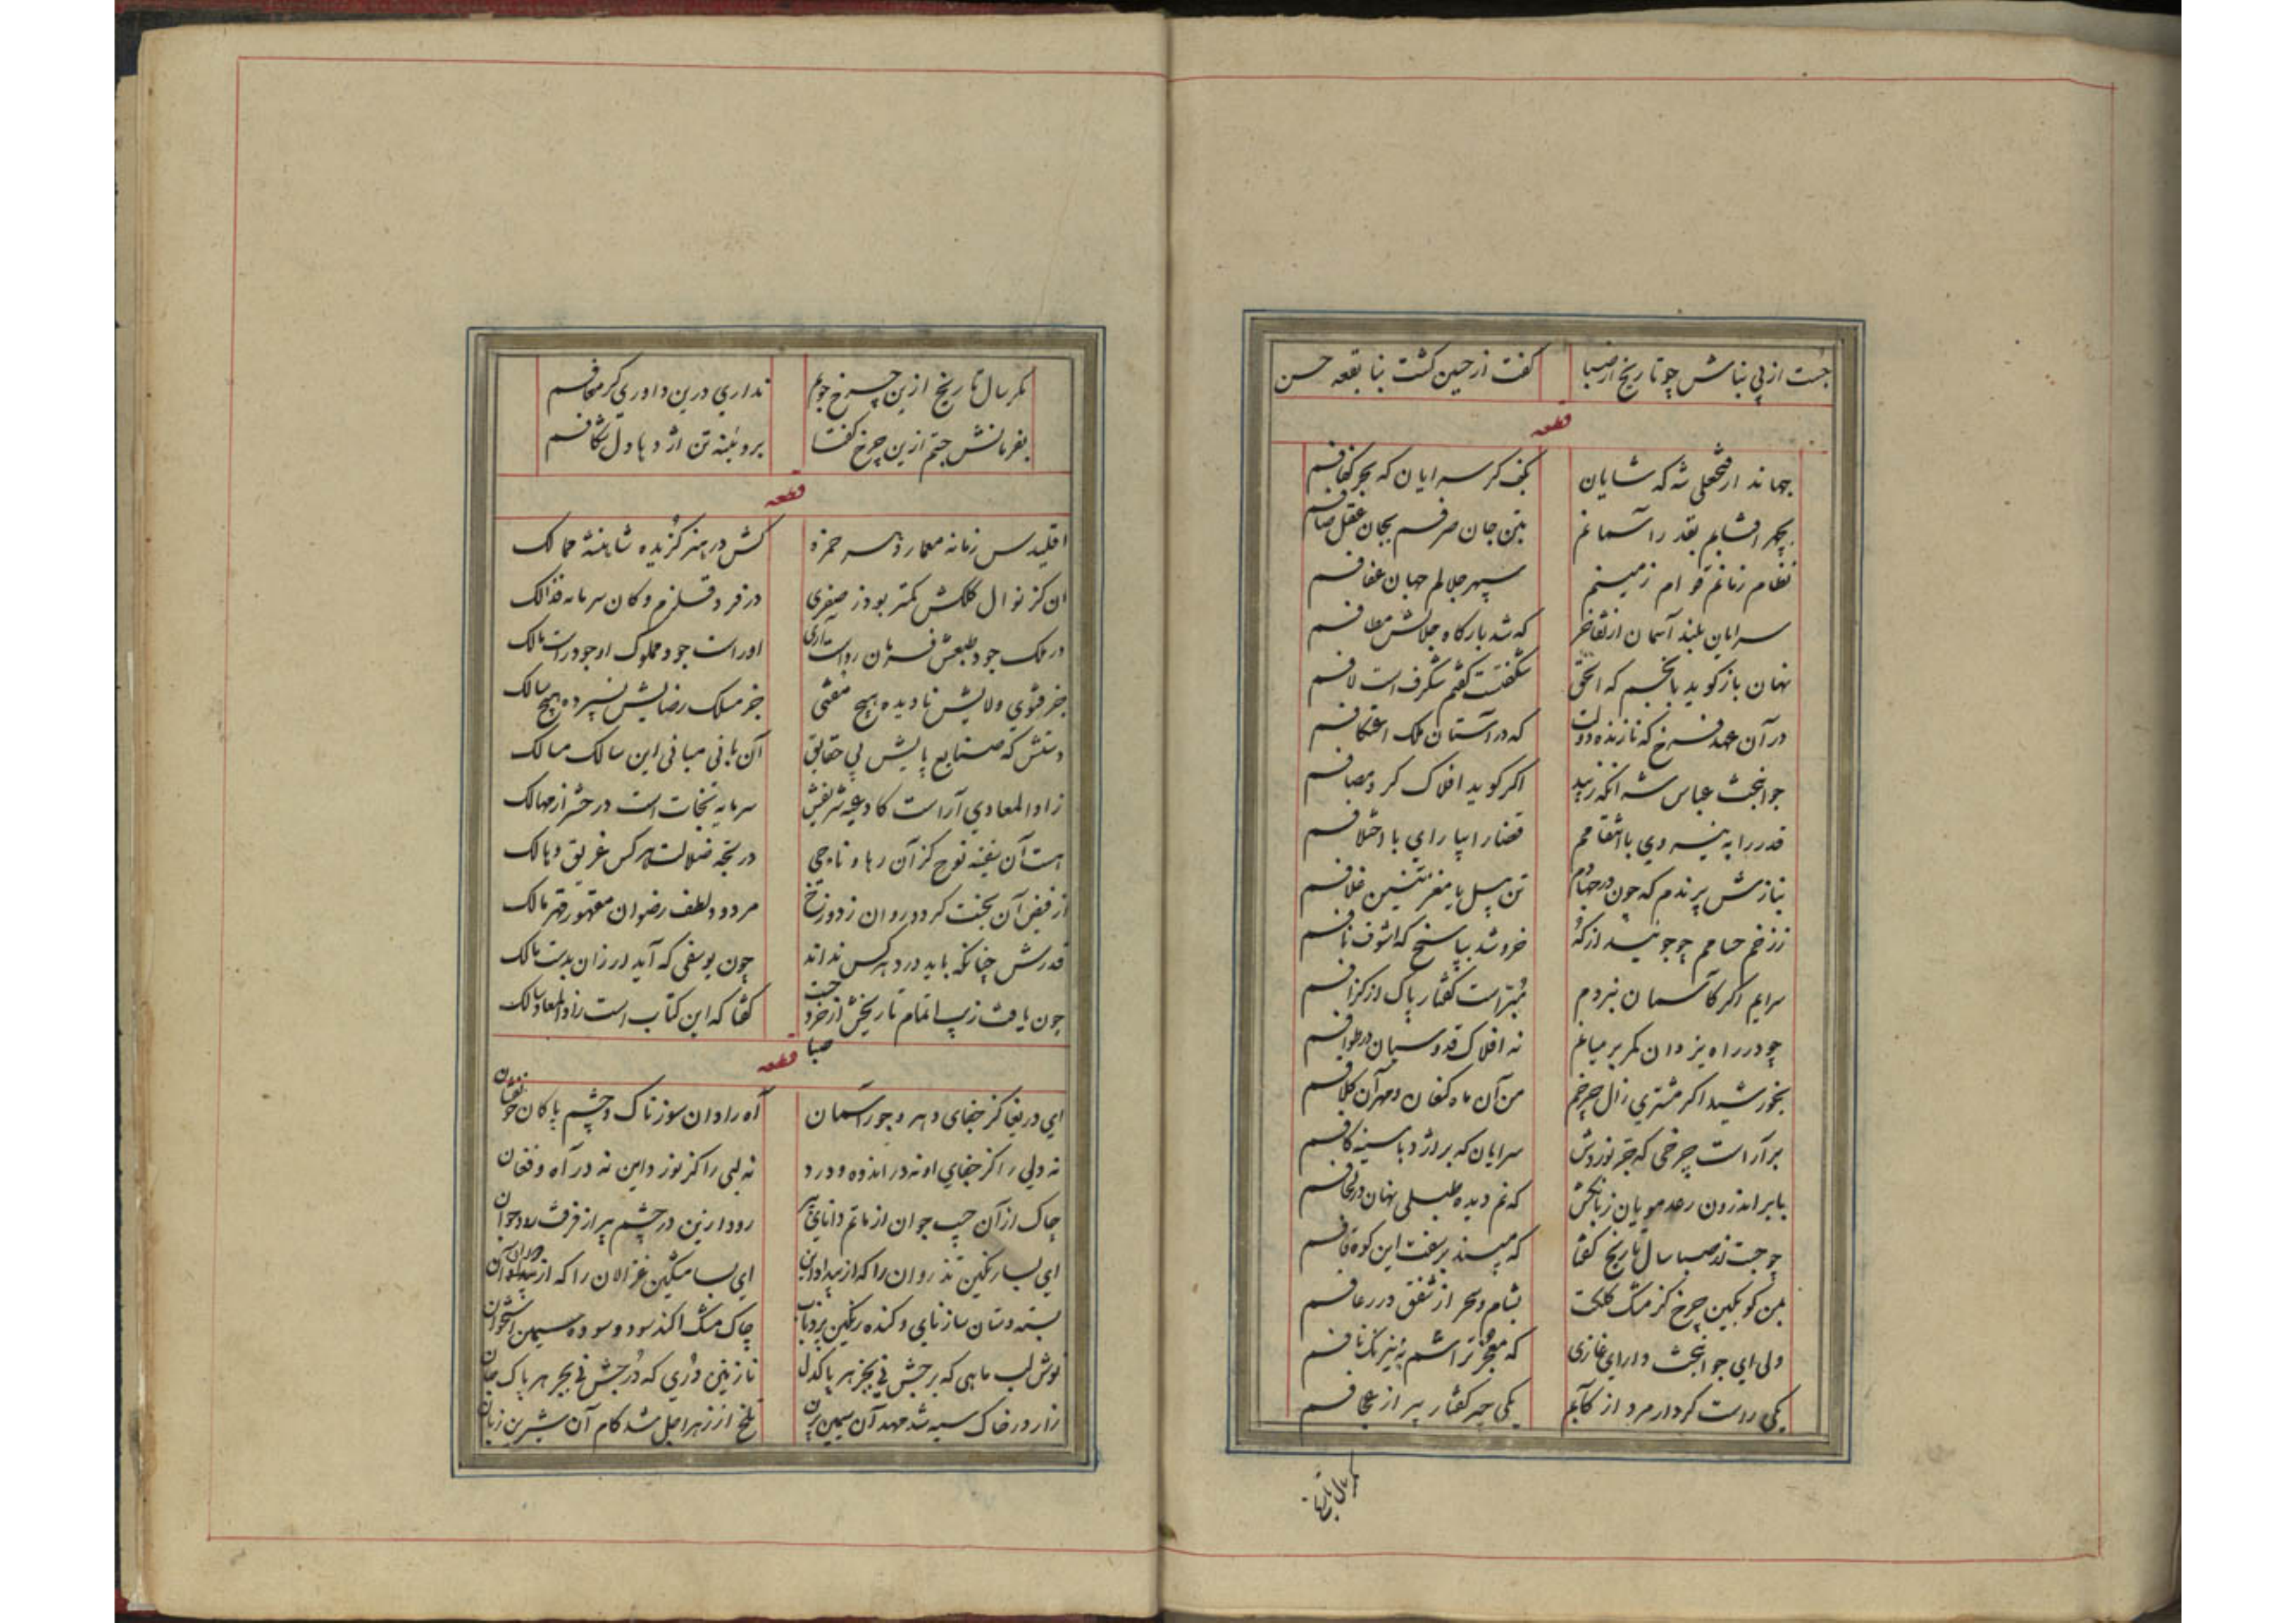 جست از پی بناش چو تاریخ از صبا گفت از حین گشت بنا بقعه حسن
قطعه
جهاندار فتحعلی شه که شایان بکف کر سرایان که بحر کفافم
بچهر افتابم بقدر آسمانم بتن جان صرفم بجان عقل صافم
نظام زمانم قوام زمینم سپهر جلالم جهان عفافم
سرایان بلند آسمان از تفاخر که شد بارگاه جلالش مطافم
نهان باز گوید بانجم که الحق شگفتست گفتم شگرف است لافم
در آن عهد فرخ که نازنده دولت که در آستان ملک اعتکافم
جوانبخت عباس شه آنکه زیبد اگر گوید افلاک گرد مصافم
قدر را به نیروی با انتقامم قضا را بیارای با اختلافم
نیازش پرندم که چون در جهادم تن پیل با مغفر غلافم
ز زخم حسامم چو جوئید از که خروشد بپاسخ که اشوف نافم
سرایم اگر کآسمان نبردم مبراست گفتار پاک از گزافم
چو در راه یزدان کمر بر میانم نه افلاک قدوسیان در طوافم
بخورشید اگر مشتری زال چرخم من آن ماه کنعان و مهر آن کلافم
برآراست چرخی که جز نوروش سرایان که بر اژدها سینه کافم
بابر اندرون رعد مویان زبانگش که نم دیده طبلی نهان در لحافم
چو جستند صبا سال تاریخ گفتا که میسند بر سفت این کوه قافم
بمن گو بگین چرخ کز مشک کلکت بشام و سحر از شفق در رعافم
ولی ای جوانبخت دارای غازی که معجز تراشم نه نیرنگ بافم
یکی راست کردار مرد از کآبم یکی چیر گفتار پیر از عجافم
مگر سال تاریخ
مگر سال تاریخ ازین چرخ جویم نداری درین داوری گر معافم
بفرمانش جستم ازین چرخ گفتا بروئینه تن اژدها دل شکافم
قطعه
اقلیدس زمانه معمار دهر حمزه کش در هنر گزیده شاهنشه ممالک
ان کز نوال کلکش کمتر بود ز صفری در فرد قلزم و کان سرمایه فذالک
در ملک جود طبعش فرمان رواست آری اوراست جود مملوک او جود راست مالک
جز فتوی ولایش نادیده هیچ مفتی جز مسلک رضایش نسپرده هیچ سالک
دستش که صنایع پایش پی حقایق آن بانی مبانی این سالک مسالک
زاد المعادی آراست کادعیه شریفش سرمایه نجات است در حشر از مهالک
هست آن سفینه نوح کز آن رها و ناجی در لجه ضلالت هر کس غریق و هالک
از فیض آن بجنت گردد روان ز دوزخ مردود لطف رضوان مقهور قهر مالک
قدرش چنانکه باید در دهر کس نداند چون یوسفی که آید ارزان بدست مالک
چون یافت زیب اتمام تاریخش از خرد جست صبا گفتا که این کتاب است زاد المعاد سالک
قطعه
ای دریغا کز جفای دهر و جور آسمان آه رادان سوزناک و چشم پاکان خونفشان
نه دلی را کز جفای او نه در اندوه و درد نه لبی را کز نوز داین نه در آه و فغان
چاک از آن جیب جوان از ماتم دانای پیر رود ازین در چشم پیر از فرقت رود جوان
ای بسا رنگین تذروان را که از بیداد این ای بسا مشگین غزالان را که از
بسته دستان ساز نای و کنده رنگین پر و بال چاک مشک اکند سود و سوده سیمین استخوان
نوش لب ماهی که برجش نی بجز هر پاکدل نازنین دری که درجش نی بجز هر پاک جان
زار در خاک سیه شد مهد آن سیمین بدن تلخ از زهر اجل شد کام آن شیرین زبان